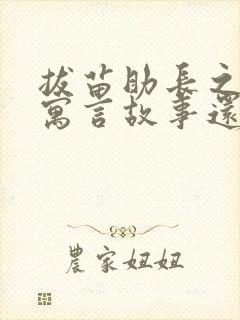 拔苗助長之
寓言故事還
農家妞妞